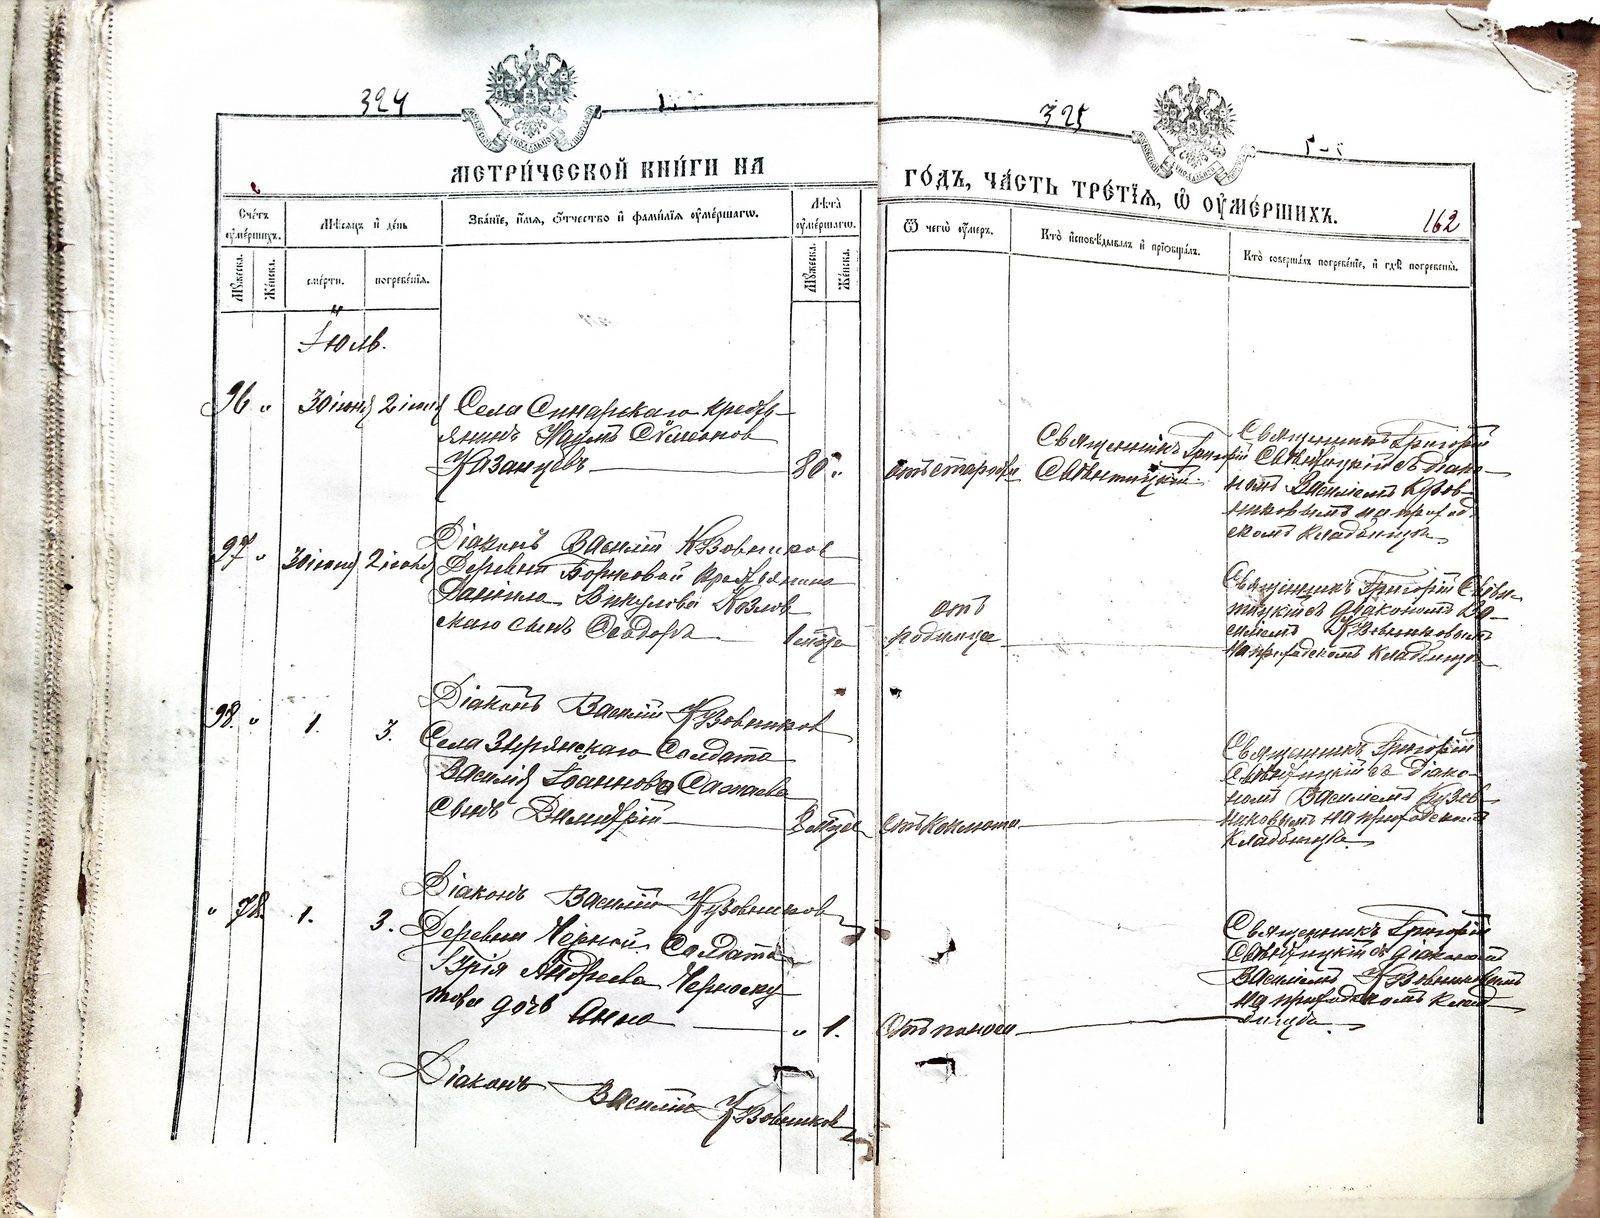 324
325
МЕТРИ́ЧЕСКОЙ КНИ́ГИ НА
ГО́ДЪ, ЧА́СТЬ ТРЕ́ТІЯ, Ѿ ОУ҆МЕ́РШИХЪ.
162
Сче́тъ оумершихъ.
Мѣсяцъ и день
Зва́нїе, и҆́мѧ, ѻ҆́тчество и҆ фами́лїѧ оу҆ме́ршагѡ.
Лѣта оу҆ме́ршагѡ.
Ѿ чегѡ̀ оу҆́меръ.
Кто̀ и҆сповѣ́дывалъ и҆ прїѡбща́лъ.
Кто̀ соверша́лъ погребе́нїе, и҆ гдѣ̀ погребены̀.
Мужеска.
Женска.
смерти.
погребенїя.
Мужеска.
Женска.
Іюль.
96 "
30 іюня
2 іюля
Села Синарскаго кресть-
янинъ Наумъ Симеонов
Казанцевъ
80 "
отъ старости
Священникъ Григорій
Свѣнтицкій
Священникъ Григорій
Свѣнтицкій съ діако-
номъ Василіемъ Кузов-
никовымъ на приход
скомъ кладбищѣ
Діаконъ Василій Кузовников
97 "
30 іюня
2 іюля
Деревни Борисовой крестьянина
Даніила Викулова Козлов
скаго сынъ Ѳеодоръ
1 мѣсяца
отъ
родимца
Священникъ Григорій Свѣн-
тицкій съ діакономъ Ва-
силіемъ Кузовниковымъ
на приходскомъ кладбищѣ
Діаконъ Василій Кузовников
98. "
1.
3.
Села Зырянскаго Солдата
Василія Іоаннова
сынъ Димитрій
отъ коклюша
Священникъ Григорій
Свѣнтицкій съ Діако-
номъ Василіемъ Кузов-
никовымъ на приходскомъ
кладбищѣ.
Діаконъ Василій Кузовников
" 78.
1.
3.
Деревни Черной Солдата
Гурія Андреева Черноску
това дочь Анна
" 1.
Отъ поноса
Священникъ Григорій
Свѣнтицкій съ діакономъ
Василіемъ Кузовниковымъ
на приходскомъ клад
бищѣ.
Діаконъ Василій Кузовников